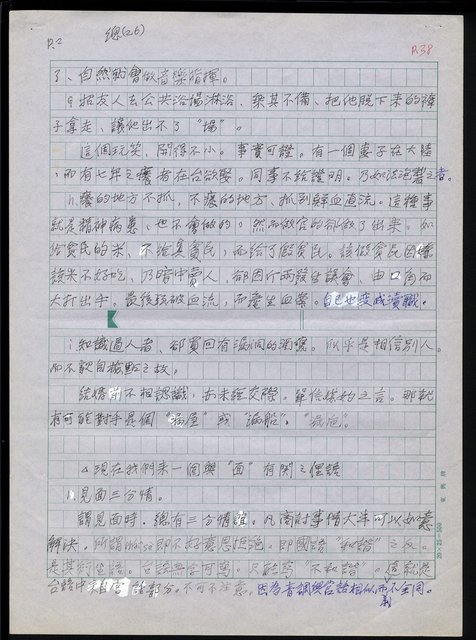 P.2 總(26) P.38
了、自然的會做音樂指揮。
g 招友人去公共浴場淋浴、乘其不備、把他脫下来的褲
子拿走、讓他出不了“場”。
這個玩笑、開得不小。事實可證。有一個妻子在大陸
、而有七年之癢者在台欲娶。同事不敢證明。乃如法泡製之者。
h 癢的地方不抓、不癢的地方、抓到鮮血直流。這種事
就是精神病患、也不會做的。然而做官的卻做了出來。如
給貧民的米、不給真貧民、而給了假貧民。該做貧民因嫌
該米不好吃、乃暗中賣人、卻因斤兩發生誤會、由口角而
大打出手。最後頭破血流、而發生血案。自己也变成瀆職。
i 知識過人者、卻買回有漏洞的酒甕。似乎是相信別人。
而不親自檢點之故。
結婚前不相認識、亦未經交際。單信媒妁之言。那就
有可能對手是個“漏屋”或“漏船”。“漏
△現在我們来一個與“面”有関之俚諺
1.見面三分情。
謂見面時、總有三分情誼。凡商討事情大半可以如意
解決。所謂 即不好意思拒絕。即國語“和諧”之反。
是其 生 。台語無字可寫。只能寫“不和諧”。這就是
台語中 部分。不可不注意。因為音調與官話相似而意義不全同。